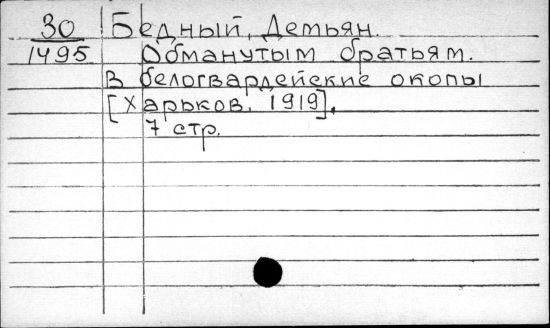 30 Бедный, Демьян.
1495 Обманутым братьям.
В белогвардейские окопы
[Харьков. 1919].
7 стр.